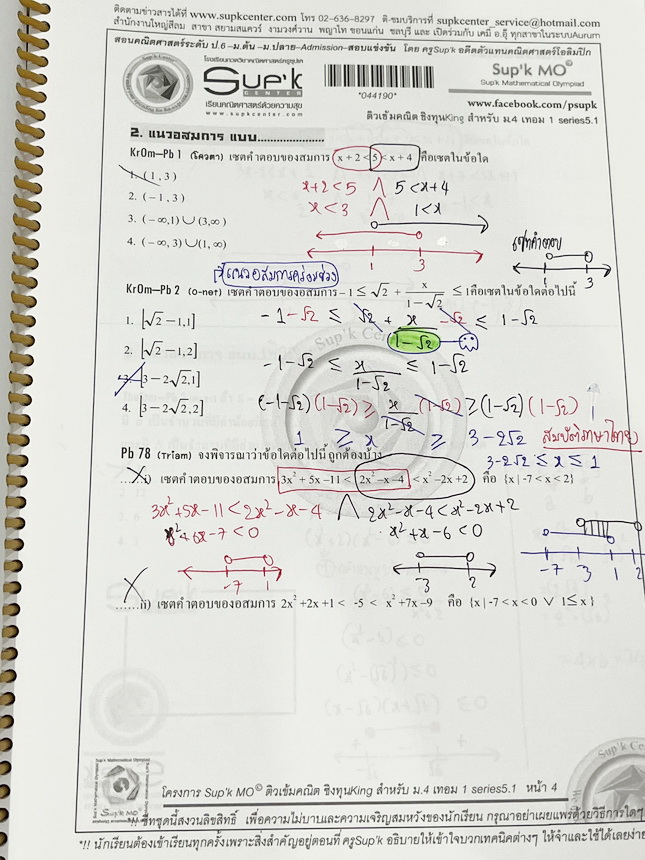 ติดตามข่าวสารได้ที่ www.supkcenter.com โทร 02-636-8297 ติ-ชมบริการที่ supkcenter_service@hotmail.com
สำนักงานใหญ่สีลม สาขา สยามสแควร์ งามวงศ์วาน พญาไท ขอนแก่น ชลบุรี และ เปิดร่วมกับ เคมี อ.อุ๊ ทุกสาขาในระบบAurum
สอนคณิตศาสตร์ระดับ ป.6-ม.ต้น-ม.ปลาย-Admission-สอบแข่งขัน โดย ครูSup'k อดีตตัวแทนคณิตศาสตร์โอลิมปิก
โรงเรียนกวดวิชาคณิตศาสตร์ครูซุปเค
Sup'k
CENTER
เรียนคณิตศาสตร์ด้วยความสุข
www.supkcenter.com
*044190*
Sup'k MO©
Sup'k Mathematical Olympiad
www.facebook.com/psupk
ติวเข้มคณิต ชิงทุนKing สำหรับ ม.4 เทอม 1 series5.1
2. แนวอสมการ แบบ....................
KrOm-Pb 1 (โควตา) เซตคำตอบของสมการ x + 2 < 5 < x + 4 คือเซตในข้อใด
1. (1, 3)
2. (−1, 3)
3. (−∞,1) ∪ (3,∞)
4. (−∞, 3) ∪ (1, ∞)
x+2<5 ∧ 5<x+4
x<3 ∧ 1<x
1 3
เซตคำตอบ
1 3
แนวอสมการคร่อมช่วง
KrOm-Pb 2 (O-net) เซตคำตอบของอสมการ −1 ≤ √2 + x/(1−√2) ≤ 1 คือเซตในข้อใดต่อไปนี้
1. [√2 − 1,1]
2. [√2 − 1,2]
3. [3 − 2√2,1]
4. [3 − 2√2,2]
-1-√2 ≤ √2 + x/(1-√2) -√2 ≤ 1-√2
-1-√2 ≤ x/(1-√2) ≤ 1-√2
(-1-√2)(1-√2) ≥ x/(1-√2) (1-√2) ≥ (1-√2)(1-√2)
1 ≥ x ≥ 3-2√2
สมบัติภาษาไทย
3-2√2 ≤ x ≤ 1
Pb 78 (Triam) จงพิจารณาว่าข้อใดต่อไปนี้ ถูกต้องบ้าง
......i) เซตคำตอบของอสมการ 3x² + 5x − 11 < 2x² − x − 4 < x² − 2x + 2 คือ {x | -7 < x < 2}
3x²+5x-11 < 2x²-x-4 ∧ 2x²-x-4 < x²-2x+2
x²+6x-7 < 0 x²+x-6 < 0
-7 1
-3 2
-7 -3 1 2
......ii) เซตคำตอบของอสมการ 2x² + 2x + 1 < -5 < x² + 7x − 9 คือ {x | -7 < x < 0 ∨ 1 ≤ x}
Sup'k Mathematical Olympiad
Sup'k MO©
โครงการ Sup'k MO© ติวเข้มคณิต ชิงทุนKing สำหรับ ม.4 เทอม 1 series5.1 หน้า 4
*!! ชีทชุดนี้สงวนลิขสิทธิ์ เพื่อความไม่บาปและความเจริญสมหวังของนักเรียน กรุณาอย่าเผยแพร่ด้วยวิธีการใดๆ
*!! นักเรียนต้องเข้าเรียนทุกครั้งเพราะสิ่งสำคัญอยู่ตอนที่ ครูSup'k อธิบายให้เข้าใจบวกเทคนิคต่างๆ ให้จำและใช้ได้เลยง่าย